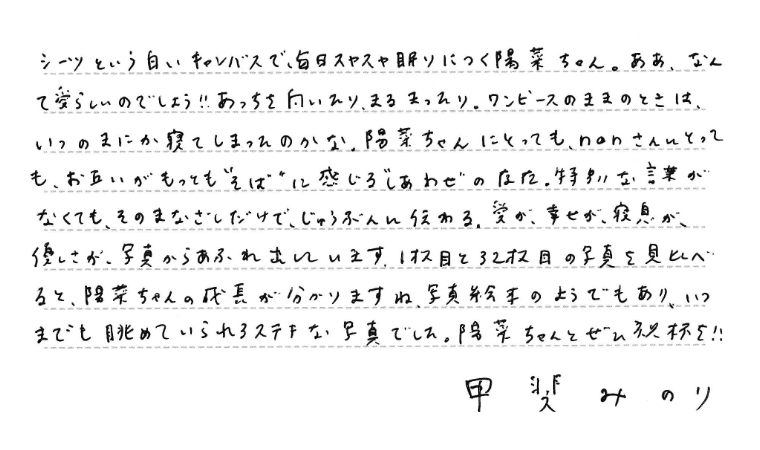 シーツという白いキャンバスで、毎日スヤスヤ眠りにつく陽菜ちゃん。ああ、なん
て愛らしいのでしょう!!あっちを向いたり、まるまったり。ワンピースのままのときは、
いつのまにか寝てしまったのかな。陽菜ちゃんにとっても、nonさんにとって
も、お互いがもっとも“そば”に感じる“しあわせ”の
なくても、そのまなざしだけで、じゅうぶんに伝わる。愛が、幸せが、寝息が、
優しさが、写真からあふれ出しています。1枚目と32枚目の写真を見比べ
ると、陽菜ちゃんの成長が分かりますね。写真絵本のようでもあり、いつ
までも眺めていられるステキな写真でした。陽菜ちゃんとぜひ祝杯を!!
甲斐みのり